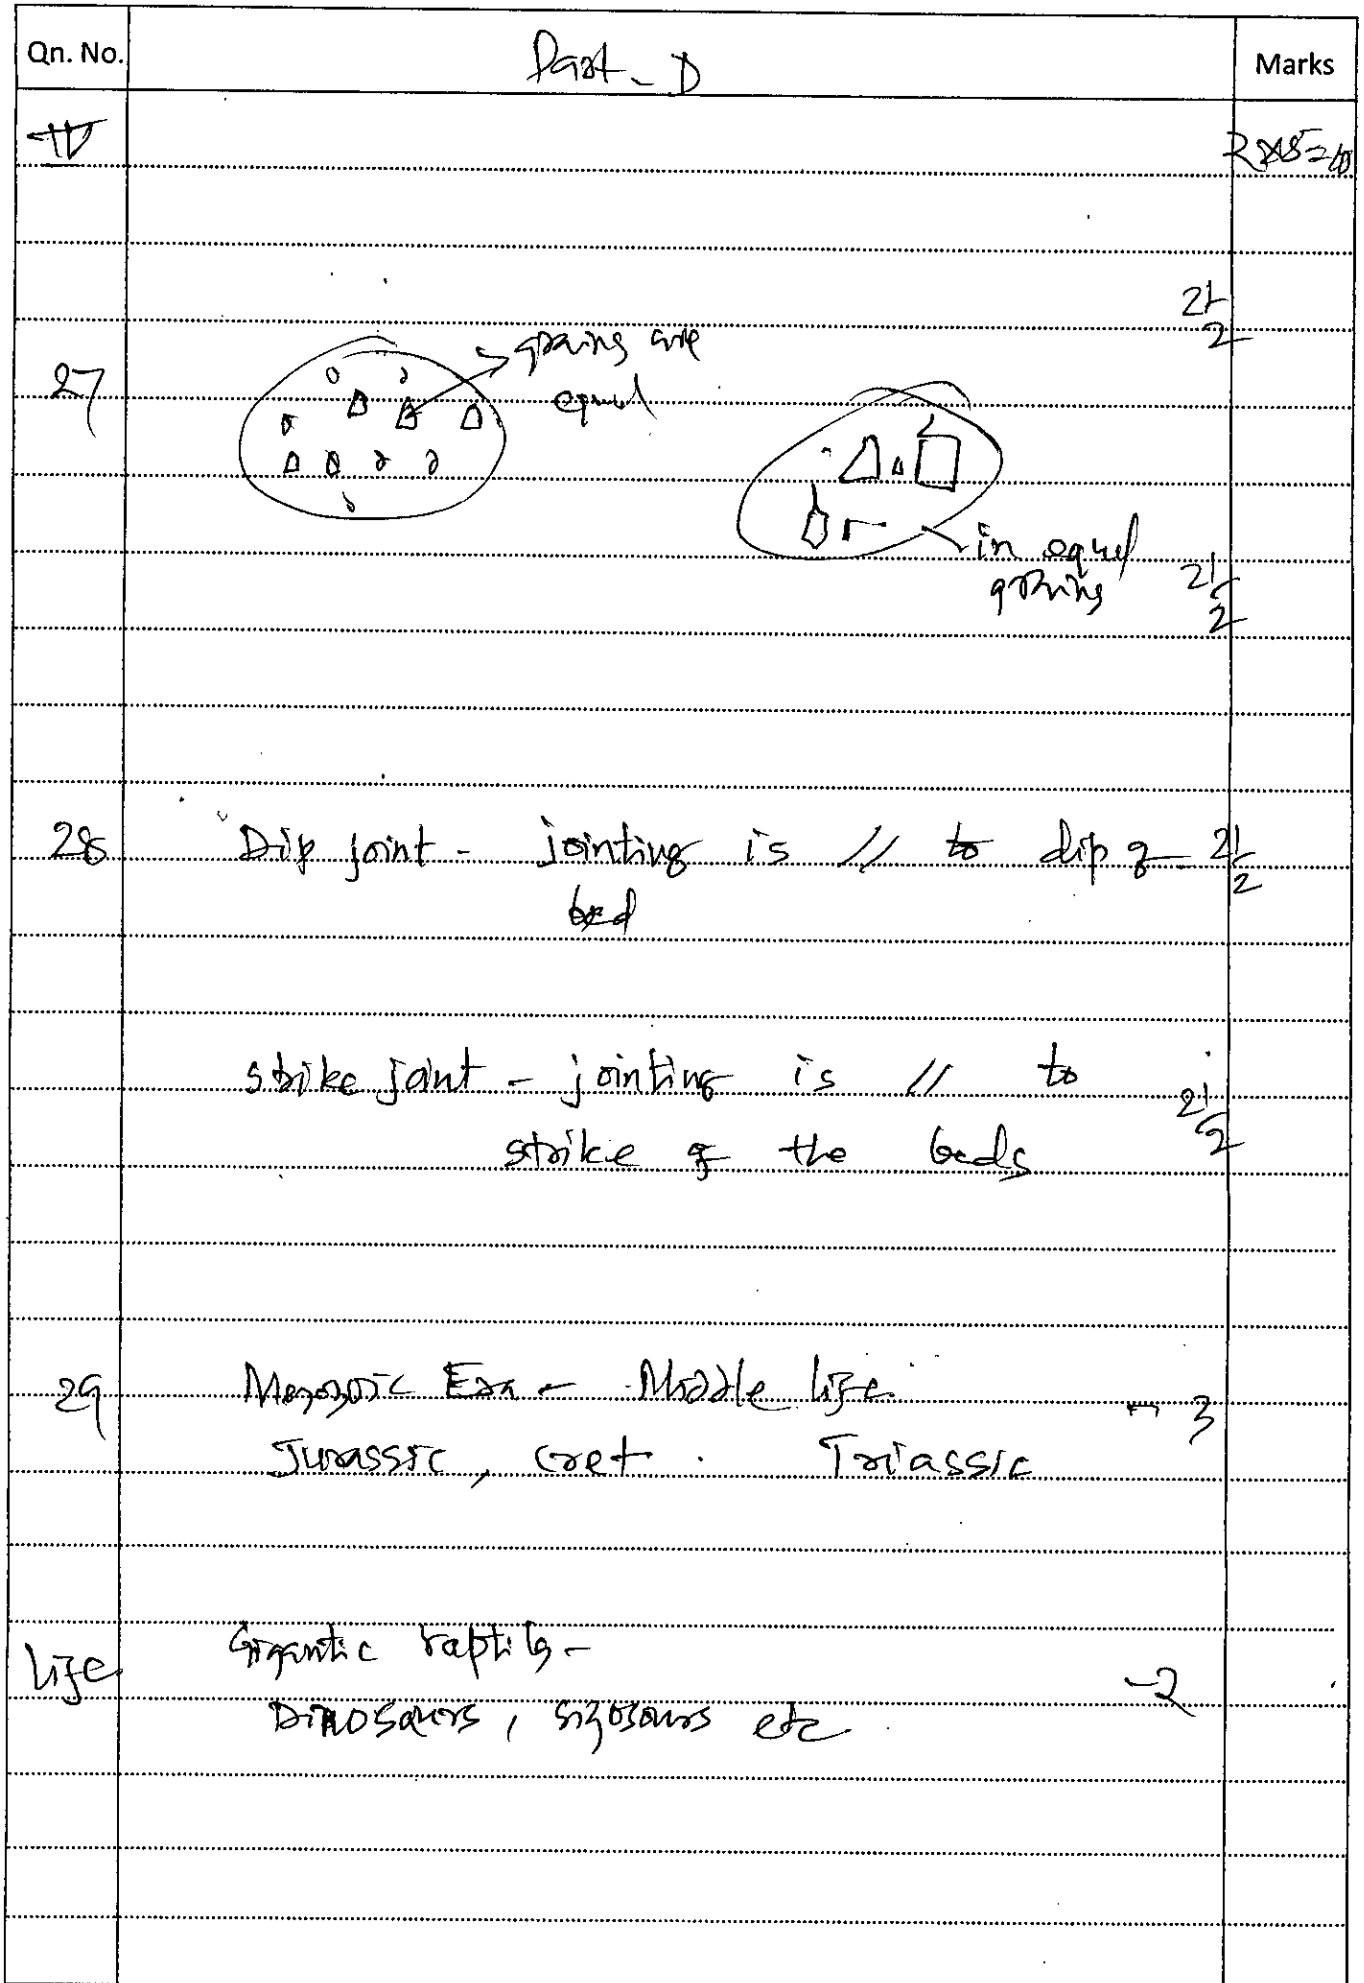 Qn. No. Part - D Marks
IV 2x5=10
2 1/2
27 grains are
equal
in equal
grains 2 1/2
28 Dip joint - jointing is // to dip of 2 1/2
bed
strike joint - jointing is // to
strike of the beds 2 1/2
29 Mesozoic Era - Middle life - 3
Jurassic, cret. Triassic
Life Gigantic reptiles -
Dinosaurs, etc - 2